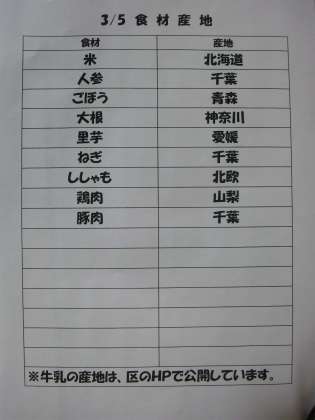 3/5 食材産地
食材 産地
米 北海道
人参 千葉
ごぼう 青森
大根 神奈川
里芋 愛媛
ねぎ 千葉
ししゃも 北欧
鶏肉 山梨
豚肉 千葉
※牛乳の産地は、区のHPで公開しています。